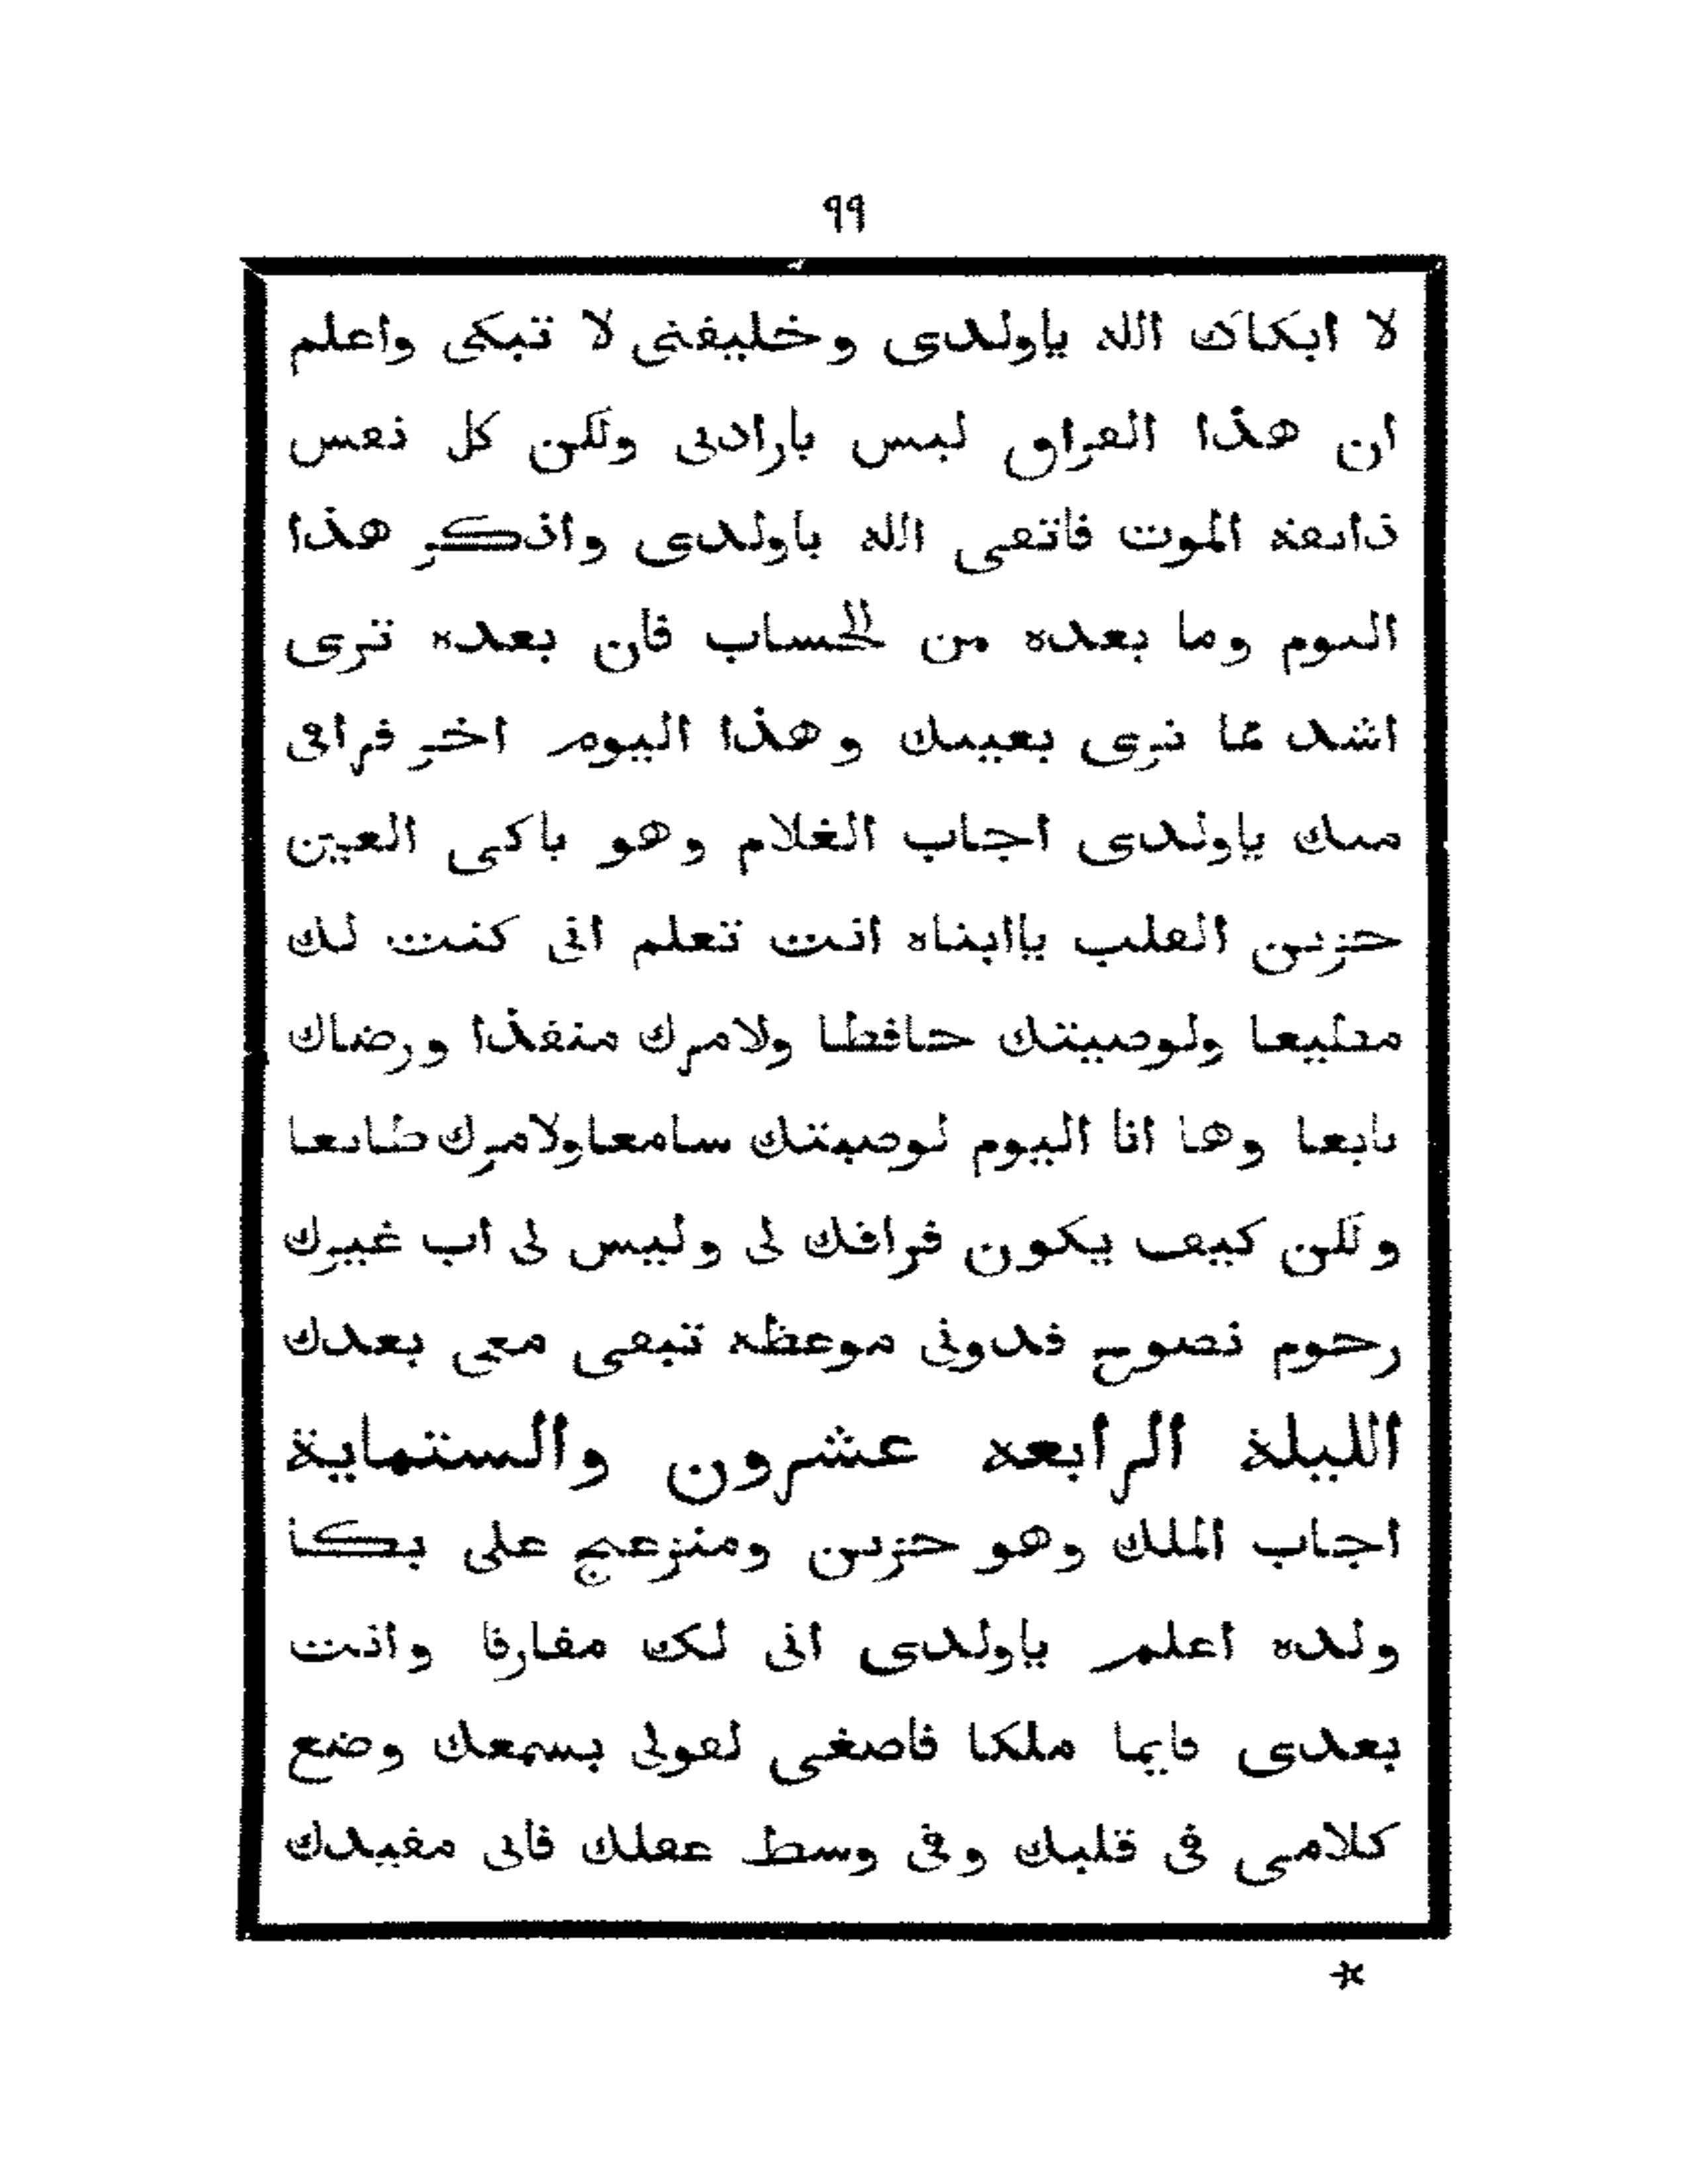 ٩٩
لا ابكاك الله ياولدى وخليفتى لا تبكى واعلم
ان هذا الفراق ليس بارادتى ولكن كل نفس
ذايقة الموت فاتقى الله ياولدى واذكر هذا
اليوم وما بعده من الحساب فان بعده ترى
اشد مما ترى بعينك وهذا اليوم اخر فراقى
منك ياولدى اجاب الغلام وهو باكى العين
حزين القلب ياابتاه انت تعلم انى كنت لك
مطيعا ولوصيتك حافظا ولامرك منفذا ورضاك
تابعا وها انا اليوم لوصيتك سامعا ولامرك طايعا
ولكن كيف يكون فراقك لى وليس لى اب غيرك
رحوم نصوح فدونى موعظه تبقى معى بعدك
الليلة الرابعه عشرون والستماية
اجاب الملك وهو حزين ومنزعج على بكا
ولده اعلم ياولدى انى لك مفارقا وانت
بعدى قايما ملكا فاصغى لقولى بسمعك وضع
كلامى فى قلبك وفى وسط عقلك فانى مفيدك
*